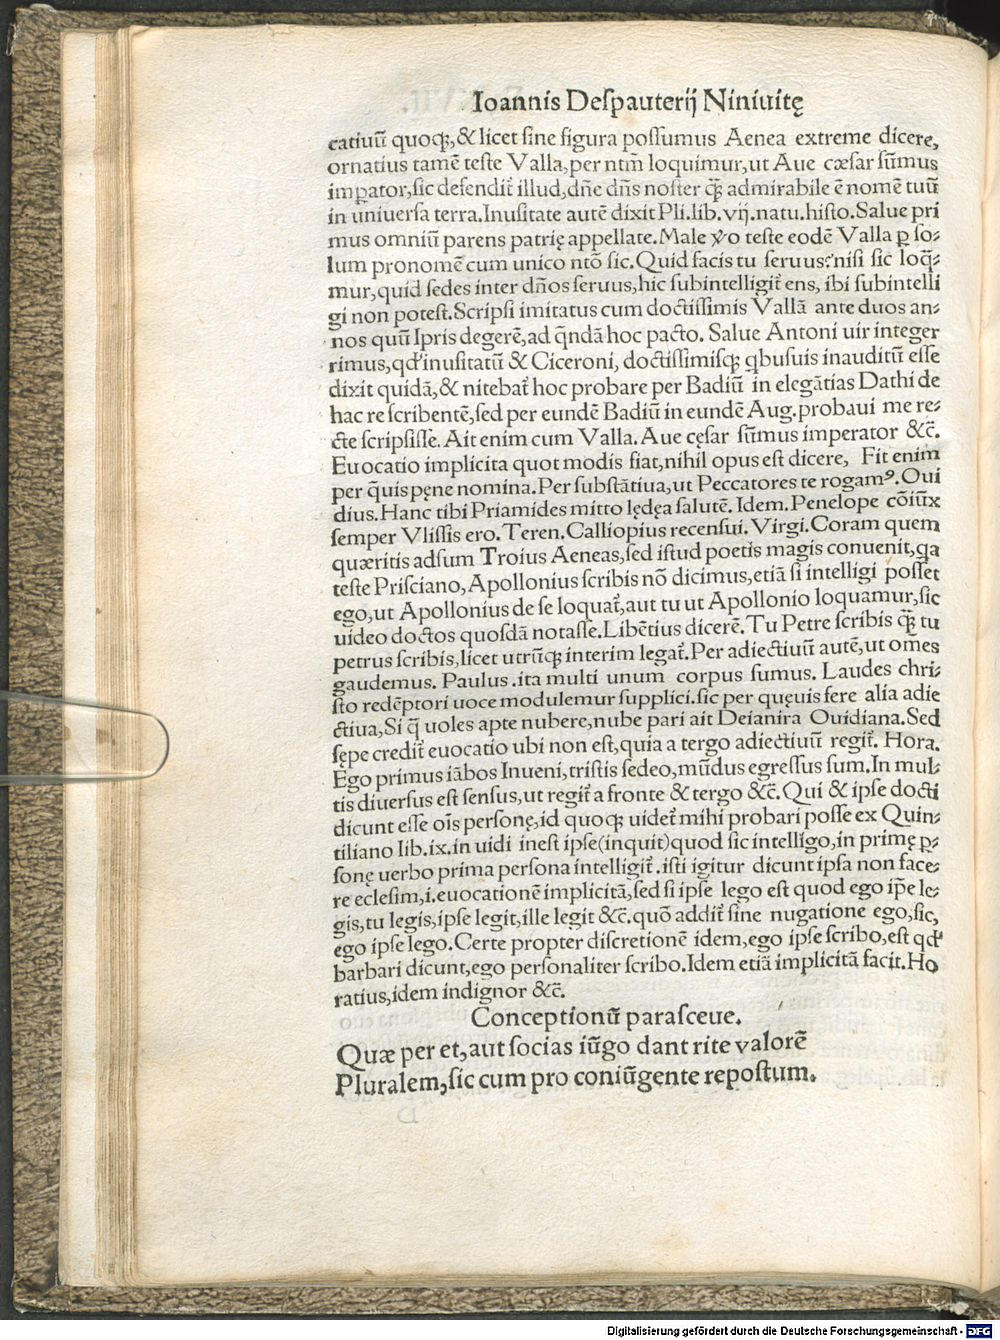 Ioannis Despauterij Niniuitę
catiuū quoq;,& licet sine figura possumus Aenea extreme dicere,
ornatius tamē teste Valla,per ntm̄ loquimur,ut Aue cæsar sūmus
imꝑator,sic defendit̄ illud,dn̄e dn̄s noster q̄ꝫ admirabile ē nomē tuū
in uniuersa terra.Inusitate autē dixit Pli.lib.vij.natu.histo.Salue pri
mus omniū parens patrię appellate.Male ꝟo teste eodē Valla ꝑ so-
lum pronomē cum unico ntō sic.Quid facis tu seruus?nisi sic loq̄-
mur,quid sedes inter dn̄os seruus,hic subintelligit̄ ens, ibi subintelli
gi non potest.Scripsi imitatus cum doctissimis Vallā ante duos an-
nos quū Ipris degerē,ad q̄ndā hoc pacto. Salue Antoni uir integer
rimus,qd̓ inusitatū & Ciceroni, doctissimisq; qbusuis inauditū esse
dixit quidā,& nitebat̄ hoc probare per Badiū in elegātias Dathi de
hac re scribentē,sed per eundē Badiū in eundē Aug.probaui me re-
cte scripsisse.Ait enim cum Valla.Aue cęsar sūmus imperator &c̄.
Euocatio implicita quot modis fiat,nihil opus est dicere, Fit enim
per q̄uis pęne nomina.Per substātiua,ut Peccatores te rogamꝰ.Oui
dius.Hanc tibi Priamides mitto lędęa salutē. Idem.Penelope cōiūx
semper Vlissis ero.Teren.Calliopius recensui.Virgi.Coram quem
quæritis adsum Troius Aeneas,sed istud poetis magis conuenit,qa
teste Prisciano,Apollonius scribis nō dicimus,etiā si intelligi posset
ego,ut Apollonius de se loquat̄,aut tu ut Apollonio loquamur,sic
uideo doctos quosdā notasse.Libētius dicerē.Tu Petre scribis q̄ꝫ tu
petrus scribis,licet utrūq; interim legat̄.Per adiectiuū autē,ut om̄es
gaudemus. Paulus .ita multi unum corpus sumus. Laudes chri-
sto redēptori uoce modulemur supplici.sic per quęuis fere alia adie
ctiua,Si q̄ uoles apte nubere,nube pari ait Deianira Ouidiana.Sed
sępe credit̄ euocatio ubi non est,quia a tergo adiectiuū regit̄. Hora.
Ego primus iābos Inueni,tristis sedeo,mūdus egressus sum.In mul-
tis diuersus est sensus,ut regit̄ a fronte & tergo &c̄.Qui & ipse docti
dicunt esse ois̄ personę,id quoq; uidet̄ mihi probari posse ex Quin-
tiliano lib.ix.in uidi inest ipse(inquit)quod sic intelligo,in primę ꝑ-
sonę uerbo prima persona intelligit̄ .isti igitur dicunt ipsa non face-
re eclesim,i.euocationē implicitā,sed si ipse lego est quod ego ip̄e le-
gis,tu legis,ipse legit,ille legit &c̄.quō addit̄ sine nugatione ego,sic,
ego ipse lego.Certe propter discretionē idem,ego ipse scribo,est qd̓
barbari dicunt,ego personaliter scribo.Idem etiā implicitā facit.Ho
ratius,idem indignor &c̄.
Conceptionū parasceue.
Quæ per et,aut socias iūgo dant rite valorē
Pluralem,sic cum pro coniūgente repostum.
Digitalisierung gefördert durch die Deutsche Forschungsgemeinschaft - DFG